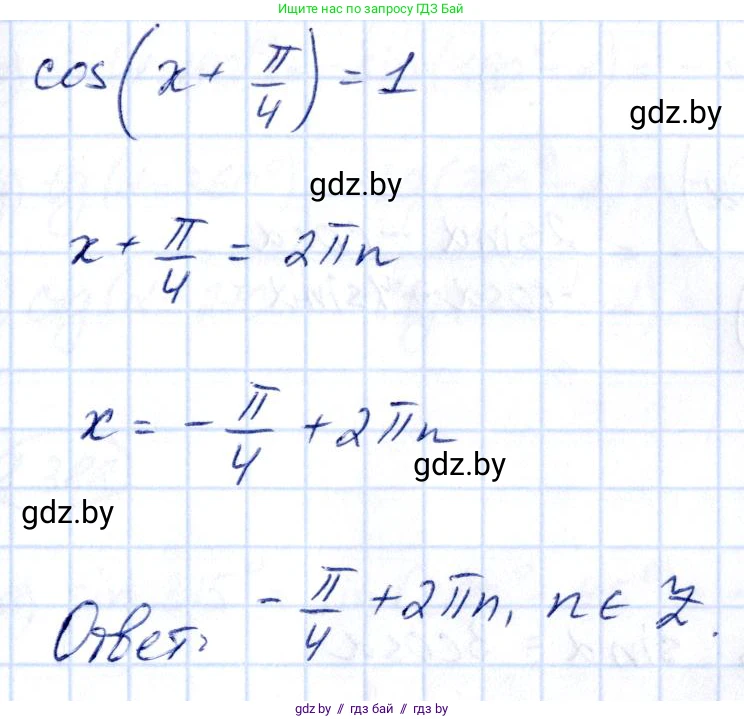 Ищите нас по запросу ГДЗ Бай
cos(x + π/4) = 1
gdz.by
gdz.by
x + π/4 = 2πn
x = - π/4 + 2πn
gdz.by
gdz.by
Ответ: - π/4 + 2πn, n ∈ Z.
gdz.by // гдз бай // gdz.by